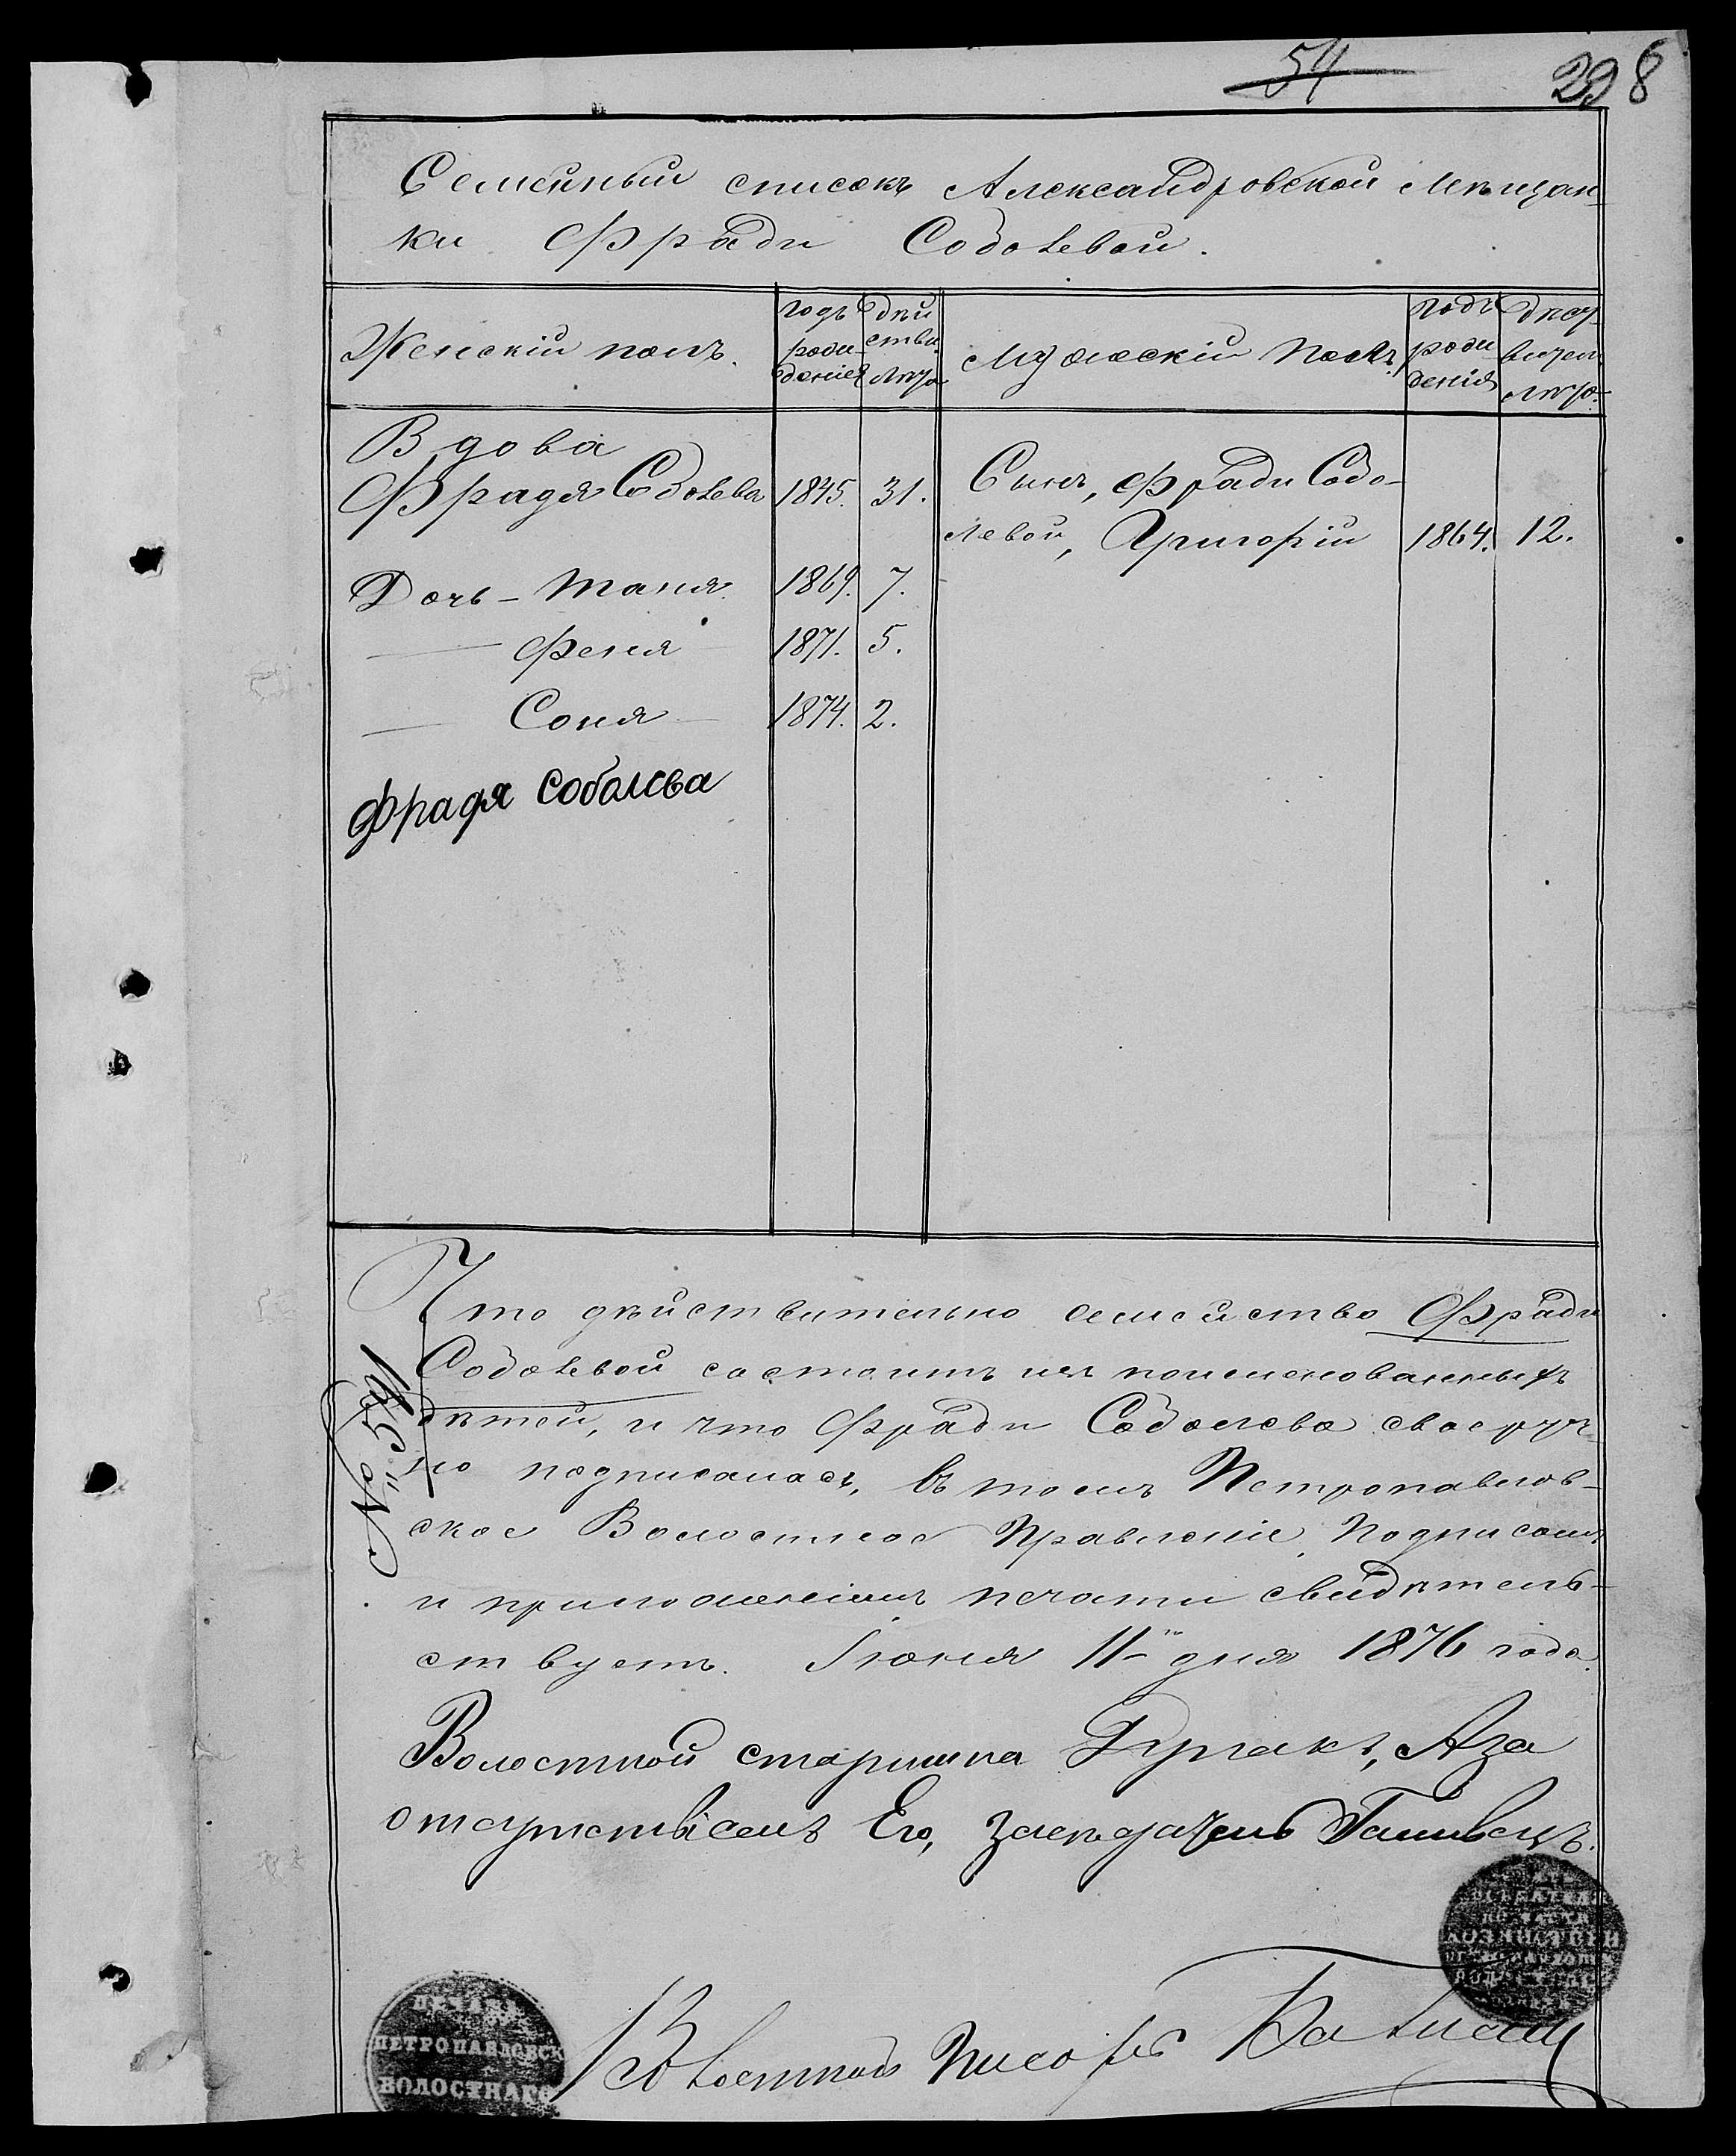 54
298
Семейный списокъ Александровской мѣщан-
ки Фради Соболевой.
Женскій полъ.
годъ рождения
дѣйстви. лѣта
Мужескій полъ.
годъ рождения
дѣйст-вител. лѣта.
Вдова
Фрадя Соболева 1845. 31.
Сынъ, Фради Собо-
левой, Григорій 1864. 12.
Дочь - Таня 1869. 7.
— Феня 1871. 5.
— Соня 1874. 2.
Фрадя Соболева
Что дѣйствительно семейство Фради
Соболевой состоитъ изъ поименованныхъ
дѣтей, и что Фради Соболева своеруч-
но подписалась, въ томъ Петропавлов-
ское Волостное Правленіе, подписомъ
и приложеніемъ печати свидѣтель-
ствуетъ. Іюня 11 дня 1876 года.
№ 591
Волостной старшина Аза
отсутствіемъ Его, засѣдатель
Волостной Писарь
ПЕЧАТЬ
ПЕТРОПАВЛОВСК
ВОЛОСТНАГО